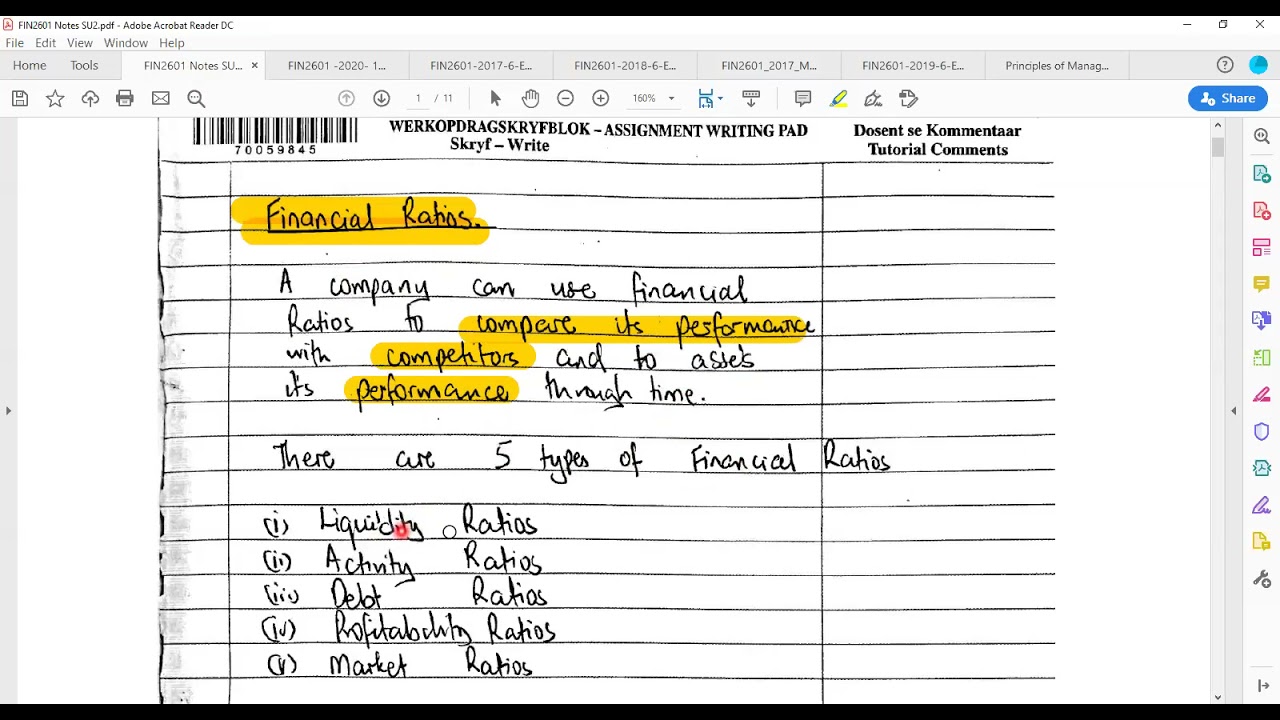 FIN2601 Notes SU2.pdf - Adobe Acrobat Reader DC
File Edit View Window Help
Home Tools FIN2601 Notes SU... × FIN2601 -2020- 1... FIN2601-2017-6-E... FIN2601-2018-6-E... FIN2601_2017_M... FIN2601-2019-6-E... Principles of Manag...
1 / 11 160% Share
WERKOPDRAGSKRYFBLOK – ASSIGNMENT WRITING PAD Dosent se Kommentaar
70059845 Skryf – Write Tutorial Comments
Financial Ratios.
A company can use financial
Ratios to compare its performance
with competitors and to assess
its performance through time.
There are 5 types of Financial Ratios
(i) Liquidity Ratios
(ii) Activity Ratios
(iii) Debt Ratios
(iv) Profitability Ratios
(v) Market Ratios